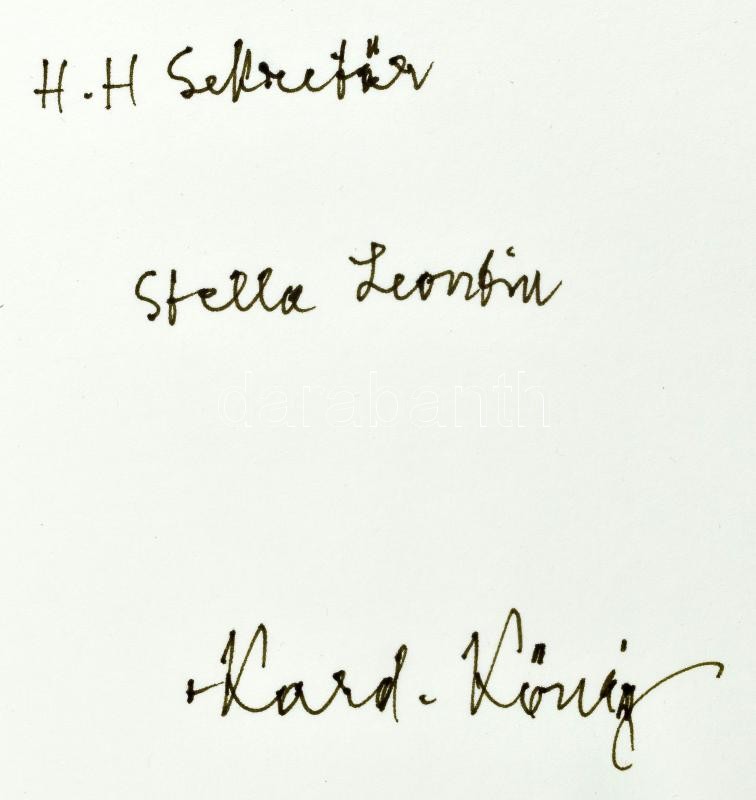 H.H Sekretär
Stella Leontin
darabanth
+Kard. König